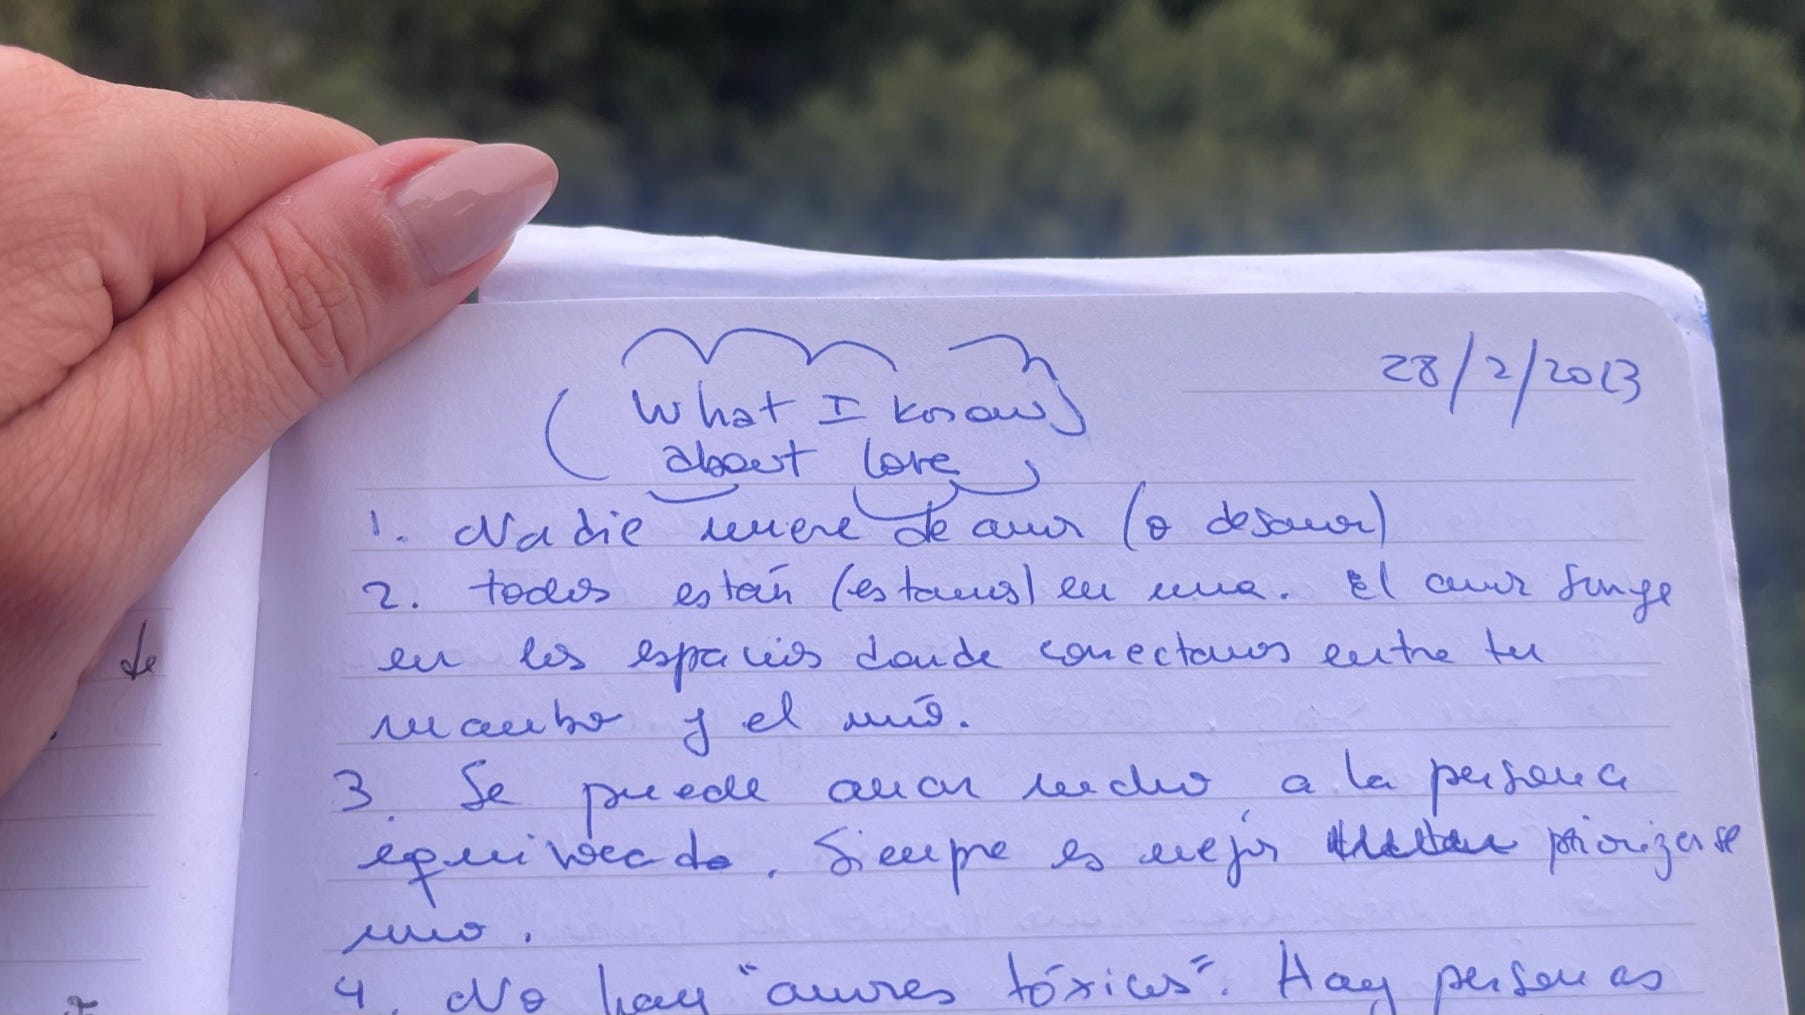 28/2/2013
What I know
about love
1. Nadie muere de amor (o desamor)
2. todos están (estamos) en una. El amor surge
en los espacios donde conectamos entre tu
mambo y el mío.
3. Se puede amar mucho a la persona
equivocada. Siempre es mejor priorizarse
uno.
4. No hay "amores tóxicos". Hay personas
de